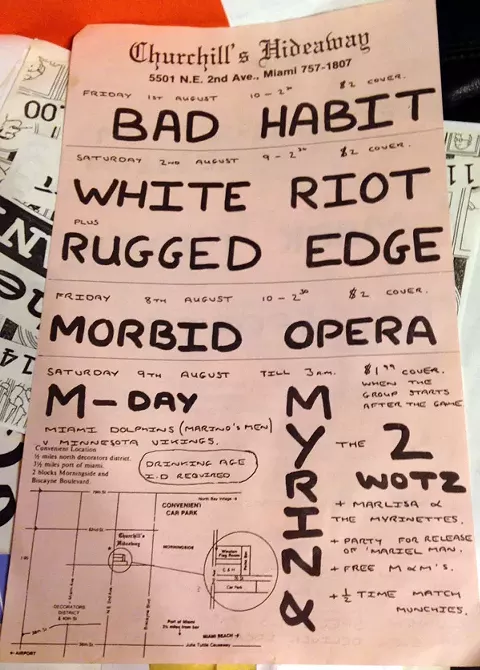 Churchill's Hideaway
5501 N.E. 2nd Ave., Miami 757-1807
FRIDAY 1ST AUGUST 10 - 2.30 $2 COVER.
BAD HABIT
SATURDAY 2ND AUGUST 9 - 2.30 $2 COVER.
WHITE RIOT
PLUS
RUGGED EDGE
FRIDAY 8TH AUGUST 10 - 2.30 $2 COVER.
MORBID OPERA
SATURDAY 9TH AUGUST TILL 3 AM. $1.99 COVER.
WHEN THE
GROUP STARTS
AFTER THE GAME
M-DAY
MIAMI DOLPHINS (MARINO'S MEN)
V MINNESOTA VIKINGS.
Convenient Location
½ miles north decorators district.
1½ miles port of miami.
2 blocks Morningside and
Biscayne Boulevard.
DRINKING AGE
I.D REQUIRED
MYRIN &
THE 2
WOTZ
+ MARLISA &
THE MYRINETTES.
+ PARTY FOR RELEASE
OF 'MARIEL MAN.
+ FREE M&M'S.
+ ½ TIME MATCH
MUNCHIES.
North Bay Village
CONVENIENT
CAR PARK
Churchill's
Hideaway
MORNINGSIDE
Car Park
DECORATORS
DISTRICT
Port of Miami
MIAMI BEACH
Julia Tuttle Causeway
AIRPORT